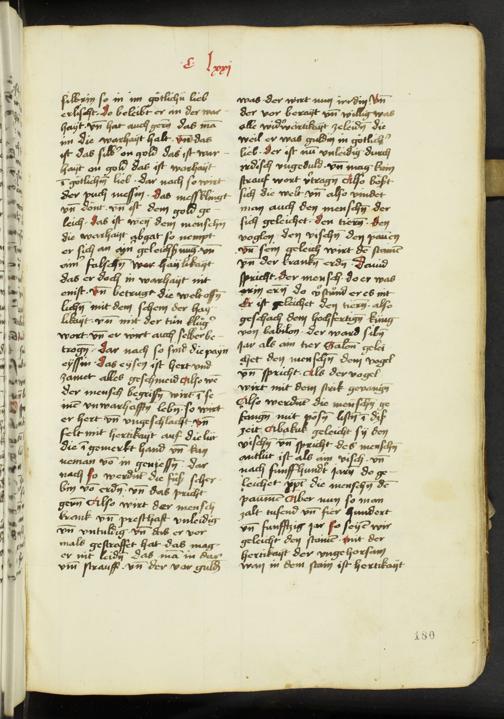 C lxxi
silbrin so in im götlichñ lieb
erlischt. do beleibt er an der war
hayt. vñ hat auch gern das ma
im die warhayt halt. vñ das
ist das silbˀ on gold das ist war
hayt on gold das ist worhayt
götlichñ lieb. dar nach so wirt
der puch messin. das mess klingt
vñ dont. vñ ist dem gold ge
leich. das ist wen dem menschñ
die warhayt abgat so nempt
er sich an ayn geleichsnuß vñ
ainˀ falschñ haylikayt
das er doch in warhayt nit
enist. vñ betrugt die
lichñ mit dem schein der hay
likayt. vñ mit der
wort vñ er wirt auch selber be
trogñ. dar nach so sind die payn
eyssin. das eysen ist hert vnd
zamet alles geschmeid also we
der mensch begrifñ wirt
aim vnwarhafftñ lebñ. so wirt
er hert vñ vngeschlacht vñ
felt mit hertikayt auf die lüt
die gemerkt hand vñ kan
neman vo im genesen. dar
nach so werdent die füß scher
bin vo erdñ. vñ das pricht
gern. also wirt der mensch
krank vñ presthaft vnleidig
vñ vntuldig vñ das er vor
mals gestrafft hat. das mag
er nit leidñ das ma in dar
vm strauff. vñ der vor guldñ
was. der wirt nun irdin. vñ
der vor berayt vñ willig was
alle widˀwertikayt zeleidñ die
weil er was guldin in götlichˀ
lieb. der ist nu vnleidig durch
irdisch vngeduld. vñ mag kain
strauf wort vˀtragñ. also hört
sich die welt vñ also vindet
man auch den menschñ der
sich geleichet. den tiern. den
voglen. den vischñ den paumen
vñ sein geleich wirt de stainñ
vñ der krankñ erdñ. Dauid
spricht. der mensch do er was
in ern do vˀstund er es nit
Er ist geleichet den tiern. also
geschach dem hochfertign kung
von babilon. der ward sibñ
jar als ain tier. Salomˀ gelei
chet den menschñ dem vogel
vñ spricht. Als der vogel
wirt mit dem strik gevangñ
Also werdent die menschñ ge
fangñ mit pösñ listñ disˀ
zeit. Abakuk geleicht sy den
vischñ vñ spricht des menschñ
antlüt ist als ain visch. vñ
nach fünffhundˀt jarn do ge
leichet xps die menschñ de
paumē. Aber nun so man
zalt tusend vñ fier hundert
vñ funfftzig jar. so seyen wir
geleicht den stainē. mit der
hertikayt der vngehorsam
wan in dem stain ist hertikayt
180